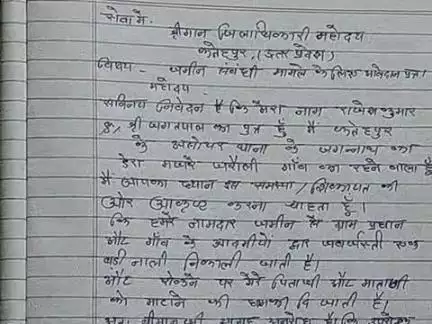 सेवा में.
श्रीमान जिलाधिकारी महोदय
फतेहपुर, (उत्तर प्रदेश)
विषय - जमीन संबंधी मामले के लिए आवेदन पत्र।
महोदय -
सविनय निवेदन है कि मेरा नाम राजेशकुमार
S/o श्री जगतपाल का पुत्र हूँ मैं फतेहपुर
के थाना के जगन्नाथ का
डेरा मजरे गाँव का रहने वाला हूँ
मैं आपका ध्यान इस समस्या / शिकायत की
ओर आकृष्ट करना चाहता हूँ।
कि हमेरे नामदार जमीन से ग्राम प्रधान
औट गाँव के आदमीयो द्वार जबर्जस्ती एक
बडी नाली निकाली जाती है।
औट रोकने पर मेरे पिताजी औट माताजी
को माटने की धमकी दि जाती है।
श्रीमान जी